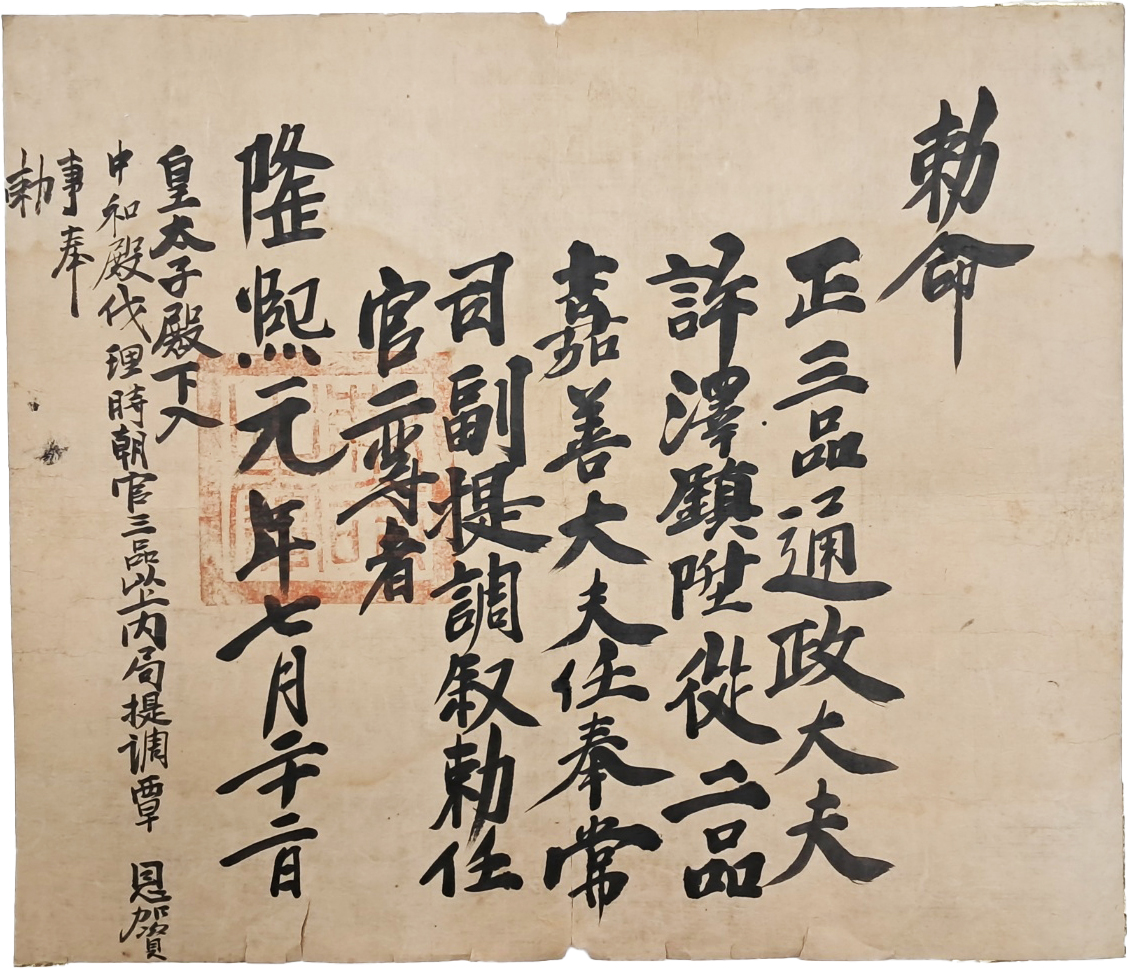 勅命
正三品通政大夫
許澤鎭陞從二品
嘉善大夫任奉常
司副提調叙勅任
官二尊者
隆熙元年七月二十二日
皇太子殿下入
中和殿代理時朝官三品以上內局提調覃 恩賀
事奉
勅